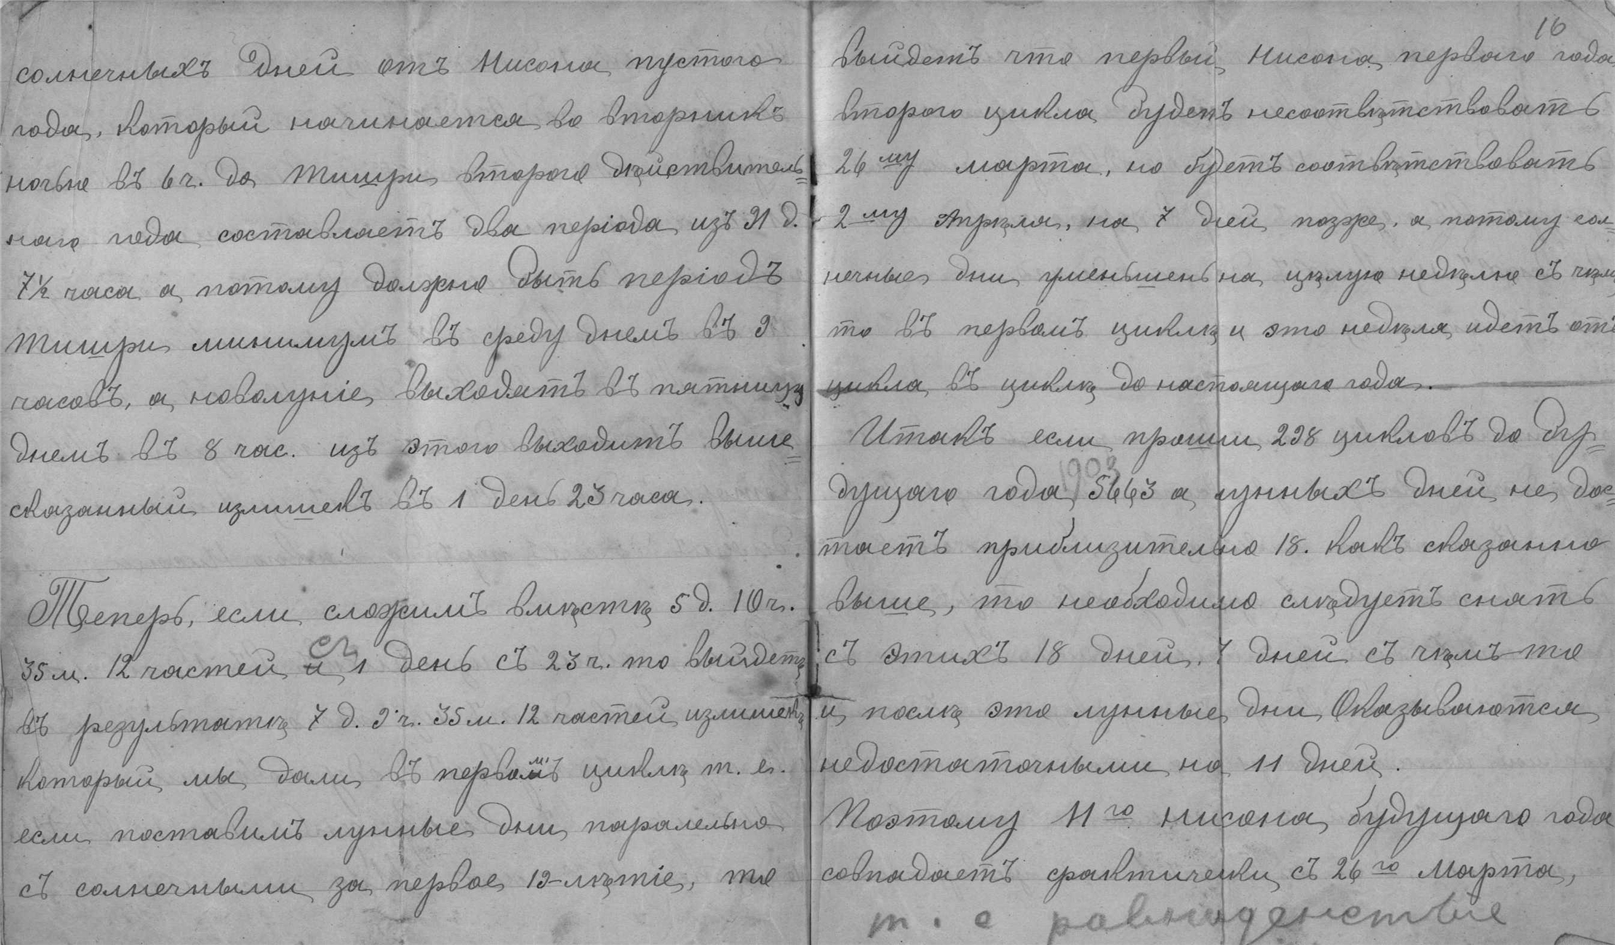 солнечныхъ дней отъ Нисона пустого
года, который начинается во вторникъ
ночью въ 6 ч. до Тишри второго дѣйствитель=
наго года составляетъ два періода изъ 91 д.
7½ часа а потому должно быть періодъ
Тишри минимумъ въ среду днемъ въ 9
часовъ, а новолуніе выходятъ въ пятницу
днемъ въ 8 час. изъ этого выходитъ выше=
сказанный излишекъ въ 1 день 23 часа.
Теперь, если сложимъ вмѣстѣ 5 д. 10 ч.
35 м. 12 частей съ 1 день съ 23 ч. то выйдетъ
въ результатѣ 7 д. 9 ч. 35 м. 12 частей излишекъ
который мы дали въ первомъ циклѣ т. е.
если поставимъ лунные дни паралельно
съ солнечными за первое 19-лѣтіе, то
16
выйдетъ что первый Нисона перваго года
второго цикла будетъ несоотвѣтствовать
26му марта, но будетъ соотвѣтствовать
2му Апрѣля, на 7 дней позже, а потому сол=
нечные дни уменьшены на цѣлую недѣлю съ чѣмъ
то въ первомъ циклѣ и это недѣля идетъ отъ
цикла въ циклѣ до настоящаго года.
Итакъ если прошли 298 цикловъ до бу=
1903
дущаго года 5663 а лунныхъ дней не дос=
таетъ приблизительно 18. какъ сказанно
выше, то необходимо слѣдуетъ снять
съ этихъ 18 дней, 7 дней съ чѣмъ-то
и послѣ это лунные дни Оказываются
недостаточными на 11 дней.
Поэтому 11го нисона будущаго года
совпадаетъ фрактически съ 26го Марта,
т. е равноденствіе